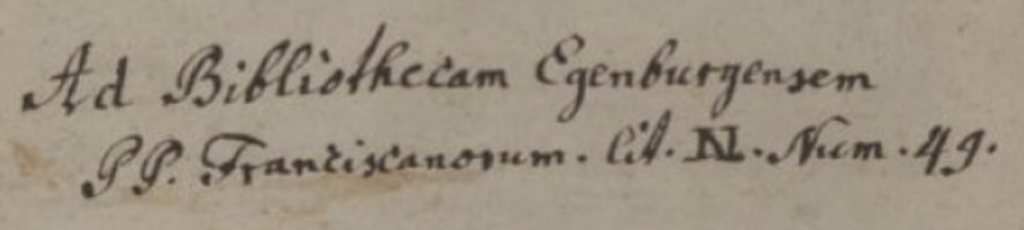 Ad Bibliothecam Egenburgensem
PP. Franciscanorum. lit. N. Num. 49.